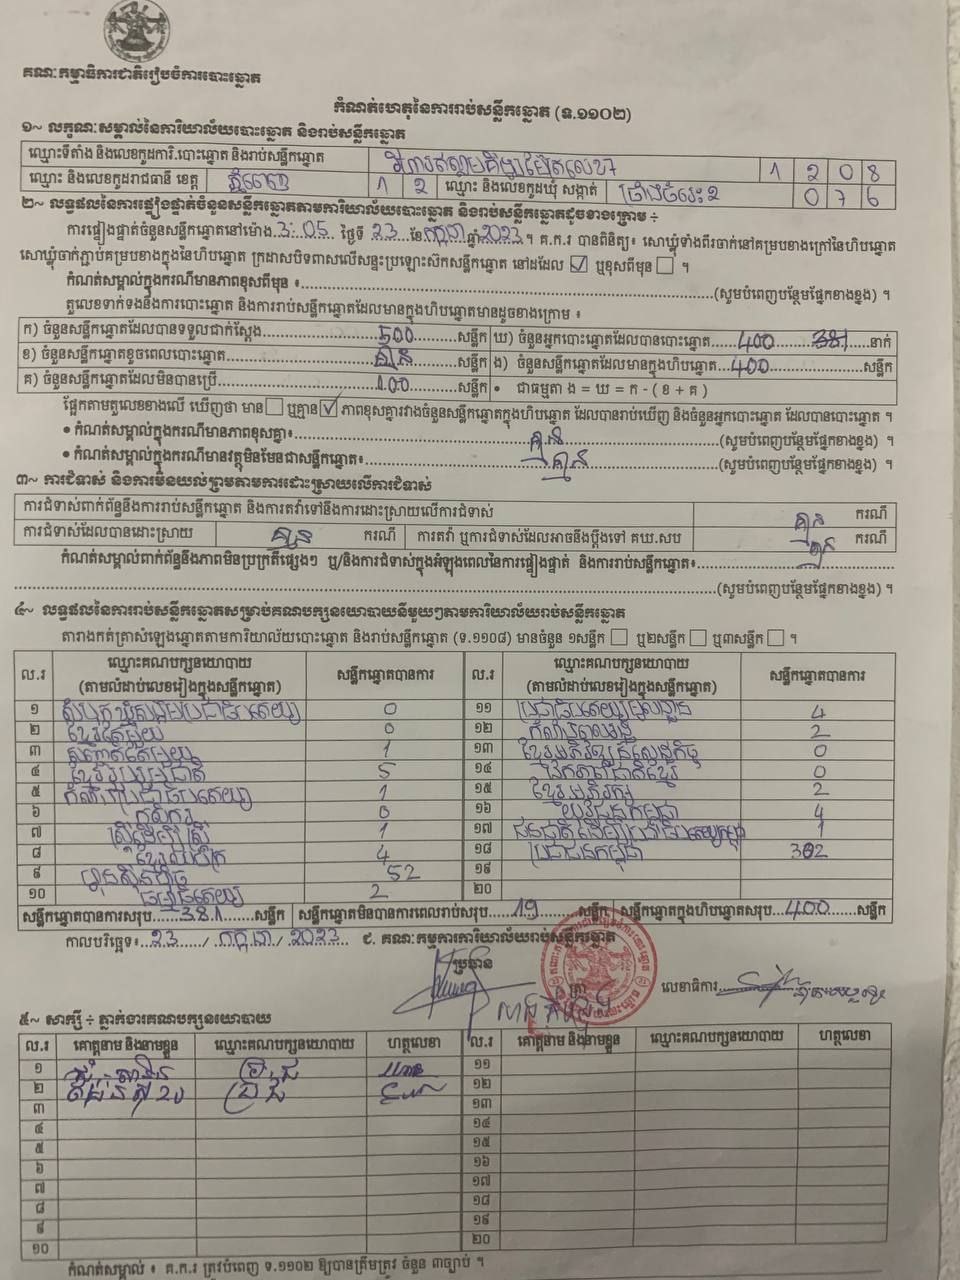 គណៈកម្មាធិការជាតិរៀបចំការបោះឆ្នោត
កំណត់ហេតុនៃការរាប់សន្លឹកឆ្នោត (ទ.១១០២)
១~ លក្ខណៈសម្គាល់នៃការិយាល័យបោះឆ្នោត និងរាប់សន្លឹកឆ្នោត
ឈ្មោះទីតាំង និងលេខកូដការិ.បោះឆ្នោត និងរាប់សន្លឹកឆ្នោត 1 2 0 8
ឈ្មោះ និងលេខកូដរាជធានី ខេត្ត ភ្នំពេញ 1 2 ឈ្មោះ និងលេខកូដឃុំ សង្កាត់ ច្រាំងចំរេះ2 0 7 6
២~ លទ្ធផលនៃការផ្ទៀងផ្ទាត់ចំនួនសន្លឹកឆ្នោតតាមការិយាល័យបោះឆ្នោត និងរាប់សន្លឹកឆ្នោតដូចខាងក្រោម ÷
ការផ្ទៀងផ្ទាត់ចំនួនសន្លឹកឆ្នោតនៅម៉ោង 3:05 ថ្ងៃទី 23 ខែ កក្កដា ឆ្នាំ 2023។ គ.ក.រ បានពិនិត្យ៖ សោឃ្លុំទាំងពីរចាក់នៅគម្របខាងក្រៅនៃហិបឆ្នោត
សោឃ្លុំចាក់ភ្ជាប់គម្របខាងក្នុងនៃហិបឆ្នោត ក្រដាសបិទពាសលើសន្ទះប្រឡោះស៊កសន្លឹកឆ្នោត នៅដដែល ☑ ឬខុសពីមុន ☐ ។
កំណត់សម្គាល់ក្នុងករណីមានភាពខុសពីមុន ៖.....(សូមបំពេញបន្ថែមផ្នែកខាងខ្នង) ។
តួលេខទាក់ទងនឹងការបោះឆ្នោត និងការរាប់សន្លឹកឆ្នោតដែលមានក្នុងហិបឆ្នោតមានដូចខាងក្រោម ៖
ក) ចំនួនសន្លឹកឆ្នោតដែលបានទទួលជាក់ស្តែង.....500.....សន្លឹក ឃ) ចំនួនអ្នកបោះឆ្នោតដែលបានបោះឆ្នោត.....400 381.....នាក់
ខ) ចំនួនសន្លឹកឆ្នោតខូចពេលបោះឆ្នោត.....គ្មាន.....សន្លឹក ង) ចំនួនសន្លឹកឆ្នោតដែលមានក្នុងហិបឆ្នោត.....400.....សន្លឹក
គ) ចំនួនសន្លឹកឆ្នោតដែលមិនបានប្រើ.....100.....សន្លឹក • ជាធម្មតា ង = ឃ = ក - ( ខ + គ )
ផ្អែកតាមតួលេខខាងលើ ឃើញថា មាន ☐ ឬគ្មាន ☑ ភាពខុសគ្នារវាងចំនួនសន្លឹកឆ្នោតក្នុងហិបឆ្នោត ដែលបានរាប់ឃើញ និងចំនួនអ្នកបោះឆ្នោត ដែលបានបោះឆ្នោត ។
• កំណត់សម្គាល់ក្នុងករណីមានភាពខុសគ្នា៖.....គ្មាន.....(សូមបំពេញបន្ថែមផ្នែកខាងខ្នង) ។
• កំណត់សម្គាល់ក្នុងករណីមានវត្ថុមិនមែនជាសន្លឹកឆ្នោត៖.....គ្មាន.....(សូមបំពេញបន្ថែមផ្នែកខាងខ្នង) ។
៣~ ការជំទាស់ និងការមិនយល់ព្រមតាមការដោះស្រាយលើការជំទាស់
ការជំទាស់ពាក់ព័ន្ធនឹងការរាប់សន្លឹកឆ្នោត និងការតវ៉ាទៅនឹងការដោះស្រាយលើការជំទាស់ គ្មាន ករណី
ការជំទាស់ដែលបានដោះស្រាយ គ្មាន ករណី ការតវ៉ា ឬការជំទាស់ដែលអាចនឹងប្តឹងទៅ គឃ.សប គ្មាន ករណី
កំណត់សម្គាល់ពាក់ព័ន្ធនឹងភាពមិនប្រក្រតីផ្សេងៗ ឬ/និងការជំទាស់ក្នុងអំឡុងពេលនៃការផ្ទៀងផ្ទាត់ និងការរាប់សន្លឹកឆ្នោត៖.....
.....(សូមបំពេញបន្ថែមផ្នែកខាងខ្នង) ។
៤~ លទ្ធផលនៃការរាប់សន្លឹកឆ្នោតសម្រាប់គណបក្សនយោបាយនីមួយៗតាមការិយាល័យរាប់សន្លឹកឆ្នោត
តារាងកត់ត្រាសំឡេងឆ្នោតតាមការិយាល័យបោះឆ្នោត និងរាប់សន្លឹកឆ្នោត (ទ.១១០៨) មានចំនួន ១សន្លឹក ☐ ឬ២សន្លឹក ☐ ឬ៣សន្លឹក ☐ ។
ល.រ ឈ្មោះគណបក្សនយោបាយ (តាមលំដាប់លេខរៀងក្នុងសន្លឹកឆ្នោត) សន្លឹកឆ្នោតបានការ ល.រ ឈ្មោះគណបក្សនយោបាយ (តាមលំដាប់លេខរៀងក្នុងសន្លឹកឆ្នោត) សន្លឹកឆ្នោតបានការ
១ សំបុកឃ្មុំសង្គមប្រជាធិបតេយ្យ 0 ១១ ប្រជាធិបតេយ្យមូលដ្ឋាន 4
២ ខ្មែរតែមួយ 0 ១២ កម្លាំងពលរដ្ឋ 2
៣ សញ្ជាតិតែមួយ 1 ១៣ ខ្មែរអភិវឌ្ឍន៍សេដ្ឋកិច្ច 0
៤ ខ្មែររួបរួមជាតិ 5 ១៤ ឯកភាពជាតិខ្មែរ 0
៥ កំណើតប្រជាធិបតេយ្យ 1 ១៥ ខ្មែរអភិរក្ស 2
៦ កសិករ 0 ១៦ យុវជនកម្ពុជា 4
៧ ស្ត្រីដើម្បីស្ត្រី 1 ១៧ ជនជាតិដើមប្រជាធិបតេយ្យកម្ពុជា 1
៨ ខ្មែរឈប់ក្រ 4 ១៨ ប្រជាជនកម្ពុជា 302
៩ ហ្វ៊ុនស៊ិនប៉ិច 52 ១៩
១០ ធម្មាធិបតេយ្យ 2 ២០
សន្លឹកឆ្នោតបានការសរុប.....381.....សន្លឹក សន្លឹកឆ្នោតមិនបានការពេលរាប់សរុប.....19.....សន្លឹក សន្លឹកឆ្នោតក្នុងហិបឆ្នោតសរុប.....400.....សន្លឹក
កាលបរិច្ឆេទ៖ 23 / កក្កដា / 2023 ជ. គណៈកម្មការការិយាល័យរាប់សន្លឹកឆ្នោត
ប្រធាន
ត្រា
លេខាធិការ
៥~ សាក្សី ÷ ភ្នាក់ងារគណបក្សនយោបាយ
ល.រ គោត្តនាម និងនាមខ្លួន ឈ្មោះគណបក្សនយោបាយ ហត្ថលេខា ល.រ គោត្តនាម និងនាមខ្លួន ឈ្មោះគណបក្សនយោបាយ ហត្ថលេខា
១ ១១
២ ១២
៣ ១៣
៤ ១៤
៥ ១៥
៦ ១៦
៧ ១៧
៨ ១៨
៩ ១៩
១០ ២០
កំណត់សម្គាល់ ៖ គ.ក.រ ត្រូវបំពេញ ទ.១១០២ ឱ្យបានត្រឹមត្រូវ ចំនួន ៣ច្បាប់ ។